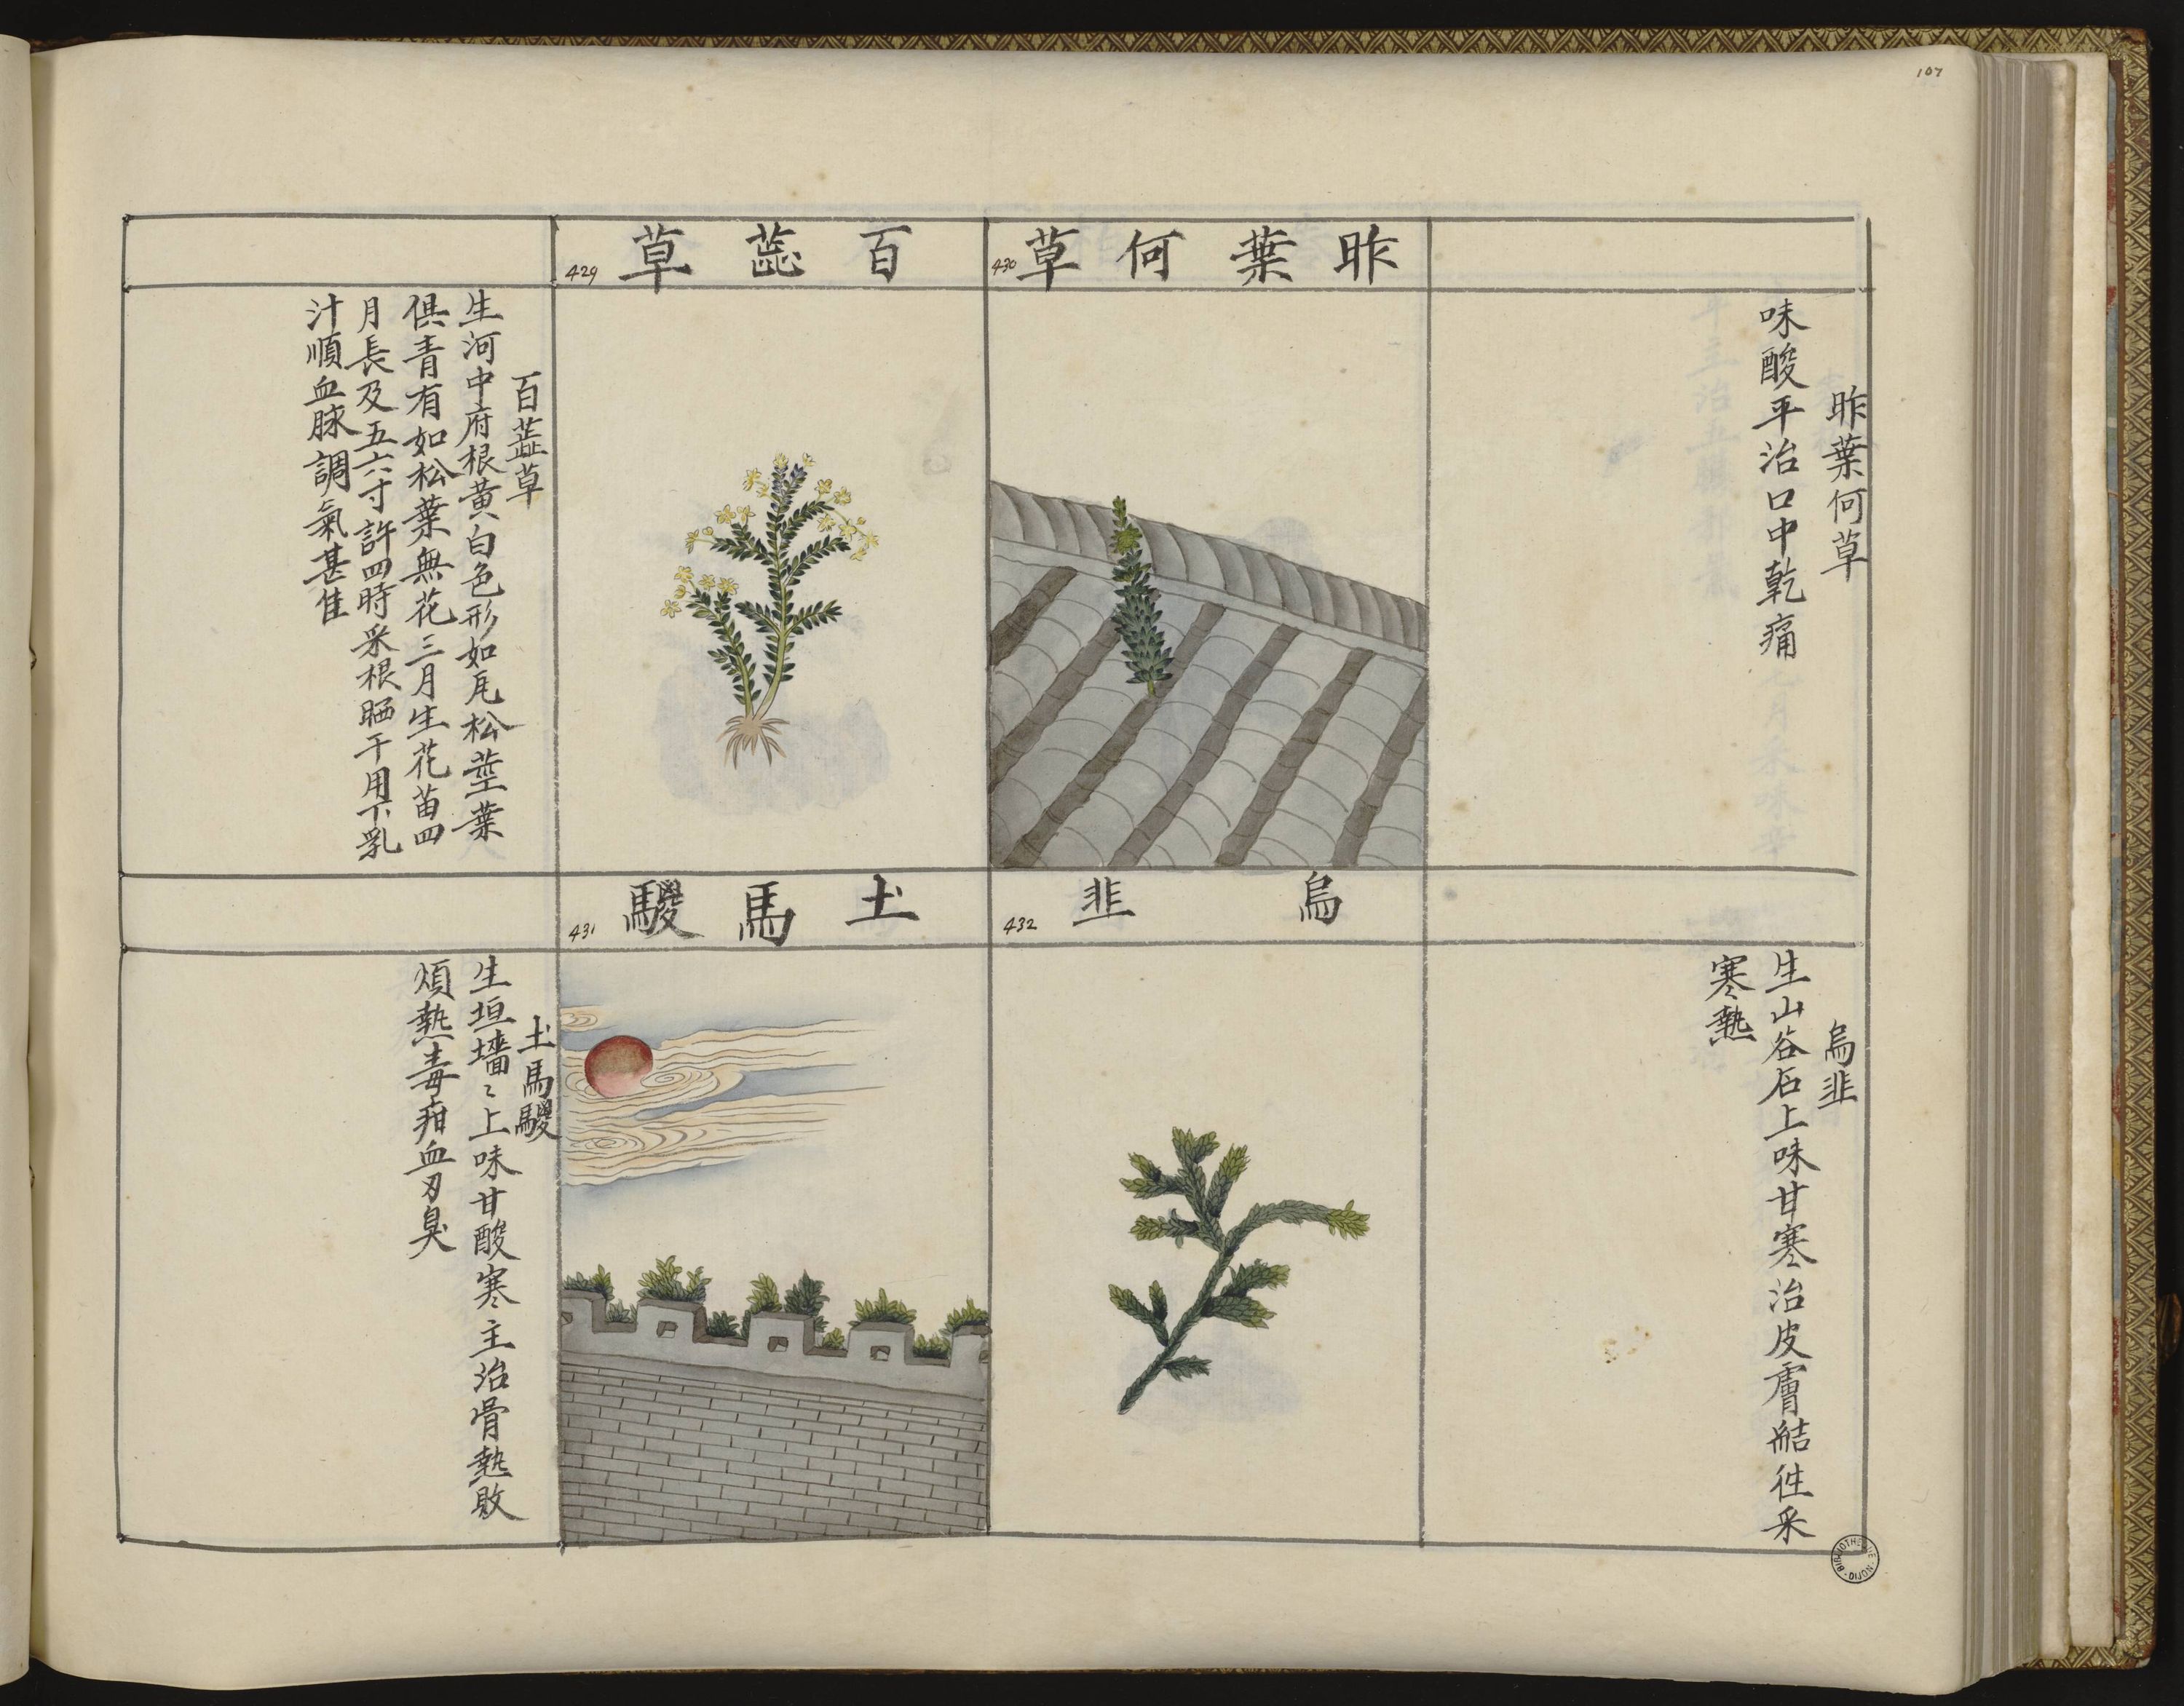 107
昨葉何草
430
昨葉何草
味酸平治口中乾痛
百蕋草
429
百蕋草
生河中府根黃白色形如瓦松莖葉
俱青有如松葉無花三月生花苗四
月長及五六寸許四時采根晒干用下乳
汁順血脉調氣甚佳
烏韭
432
烏韭
生山谷石上味甘寒治皮膚結徃采
寒熱
土馬騣
431
土馬騣
生垣墻〻上味甘酸寒主治骨熱敗
煩熱毒疳血刃臭
BIBLIOTHEQUE DIJON